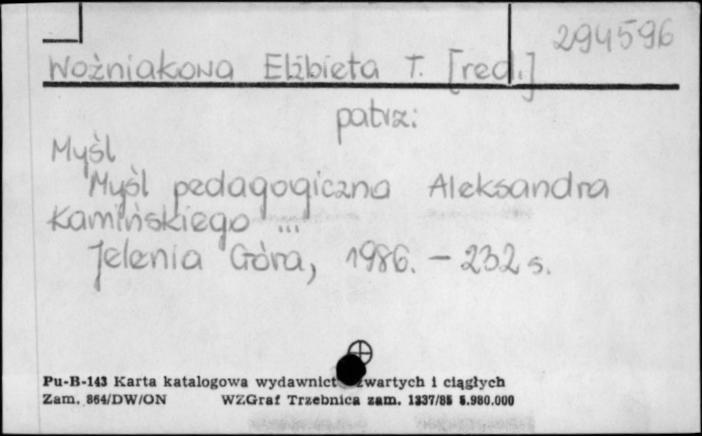 294596
Woźniakowa Elżbieta T. [red.]
patrz:
Myśl
Myśl pedagogiczna Aleksandra
Kamińskiego ...
Jelenia Góra, 1986. – 232 s.
Pu-B-143 Karta katalogowa wydawnict zwartych i ciągłych
Zam. 864/DW/ON WZGraf Trzebnica zam. 1337/85 5.980.000